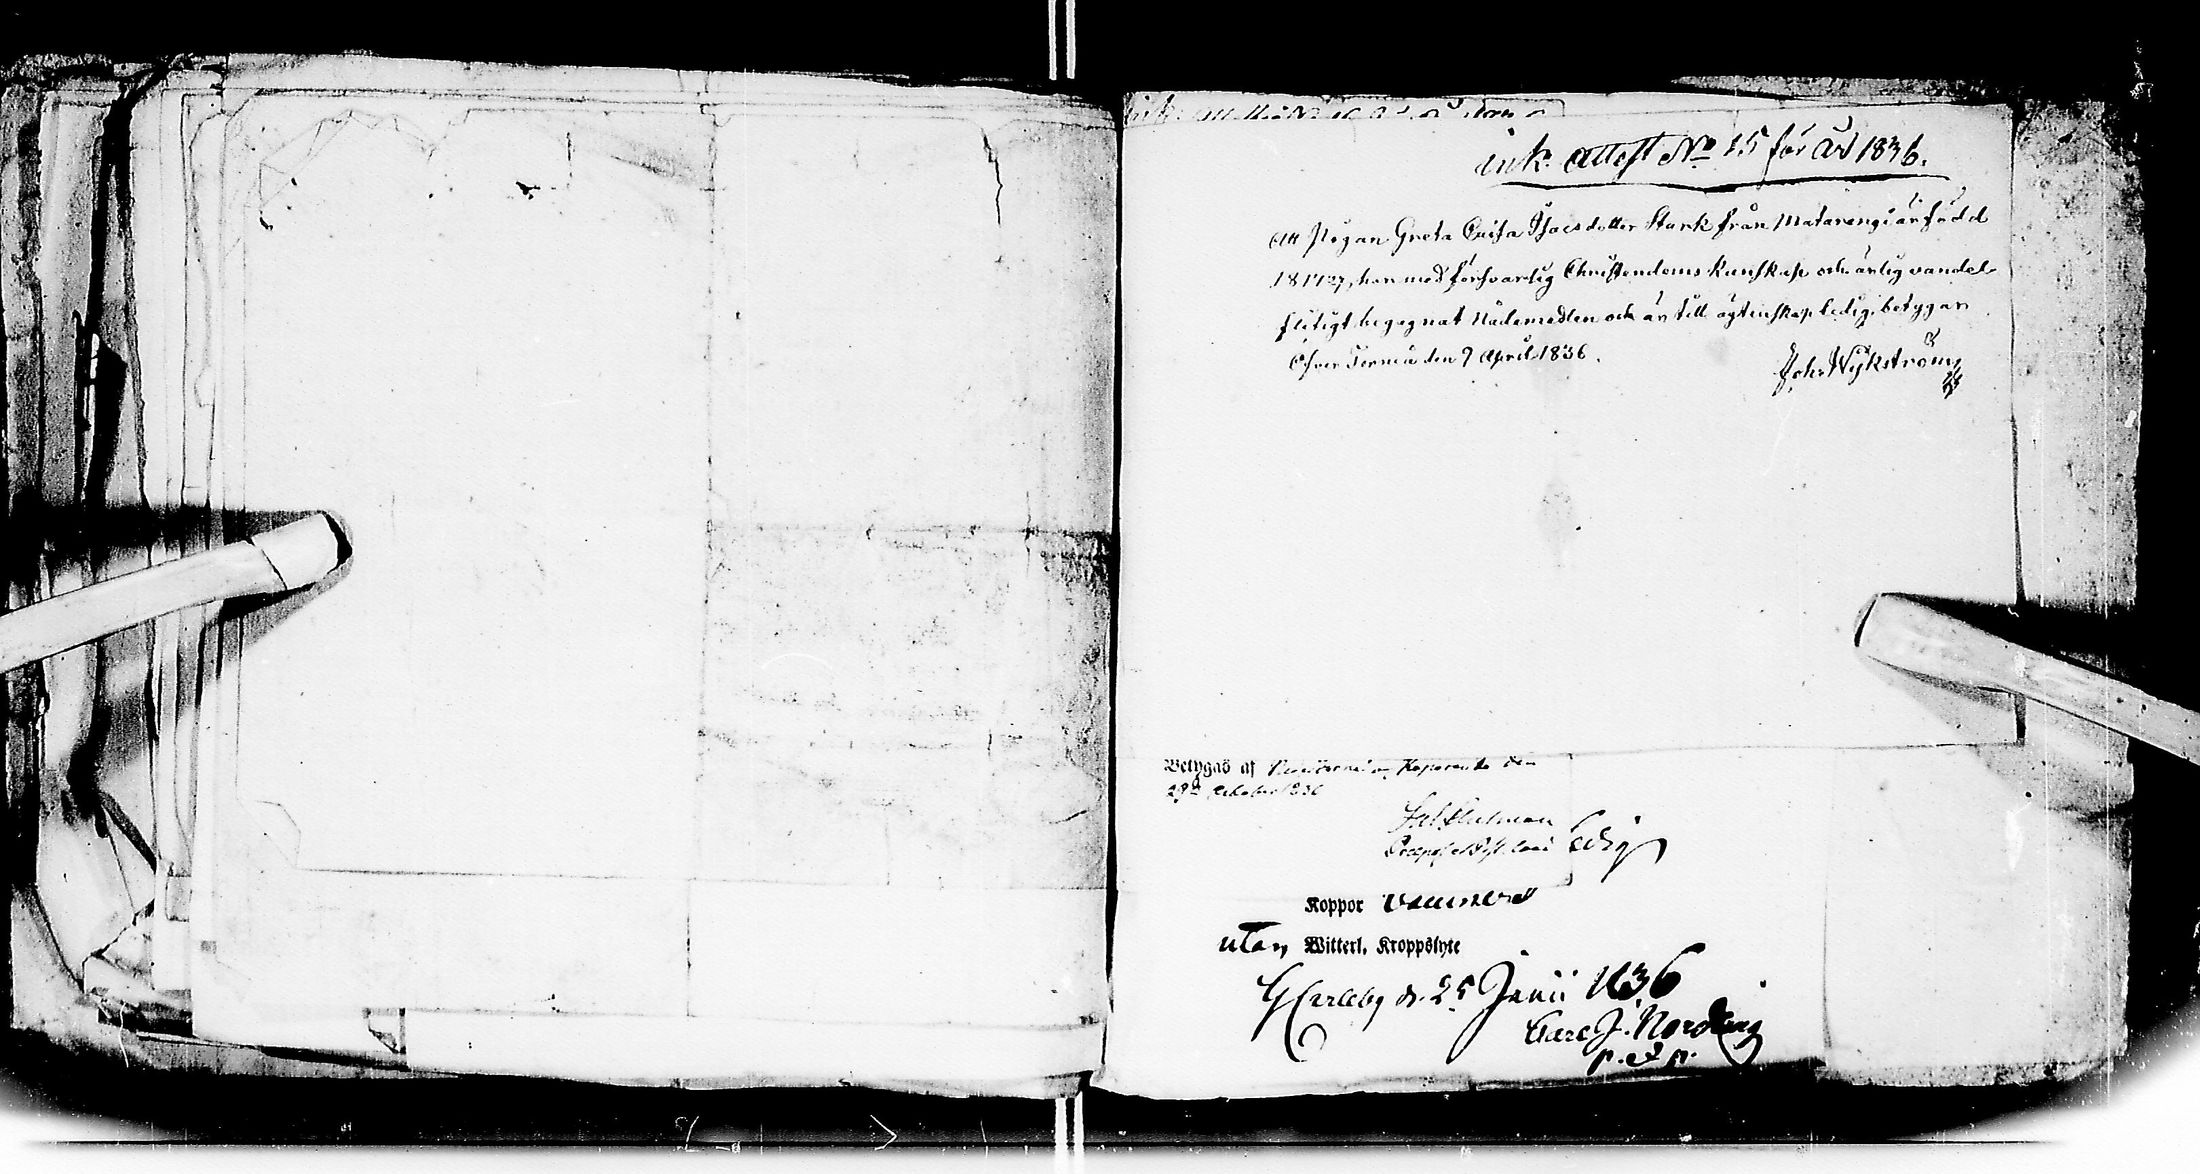 ink. attest No 15 för år 1836.
Att Pigan Greta Caisa Isacsdotter Stark från Matarengi är född
18 17/12 7, har med försvarlig Christendoms kunskap och ärlig vandel
flitigt begagnat Nådemedlen och är till ägtenskap ledig, betygar
Öfver Torneå den 9 April 1836.
Joh. Wykström
Betygas af Nedertorneå Haparanda den
29de October 1836
Koppor vaccinerad
utan Witterl. Kroppslyte
G Carleby d. 25 Junii 1836
Carl J. Nordling
p. et p.